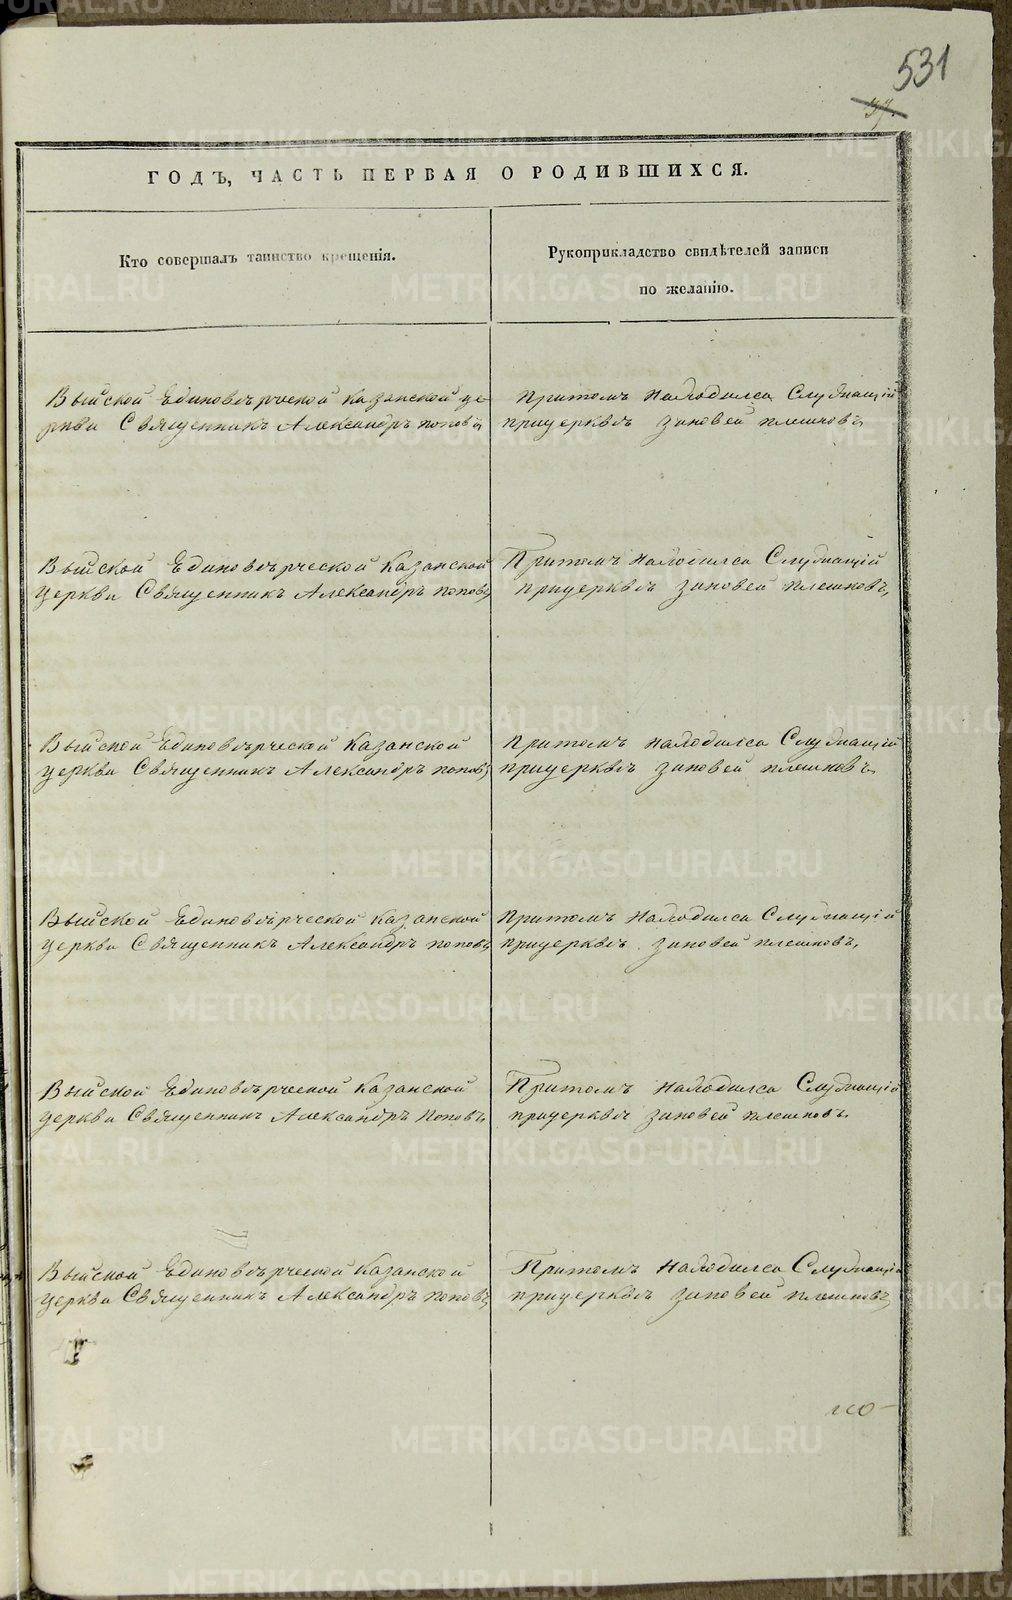 531
37.
ГОДЪ, ЧАСТЬ ПЕРВАЯ О РОДИВШИХСЯ.
Кто совершалъ таинство крещенія.
Рукоприкладство свидѣтелей записи
по желанію.
Выйской Единовѣрческой казанской це-
ркви Священникъ Александръ поповъ
притомъ находился Служащій
прицерквѣ зиновей плешковъ
Выйской Единовѣрческой Казанской
церкви Священникъ Александръ поповъ
Притомъ находился Служащій
прицерквѣ зиновей плешковъ,
Выйской Единовѣрческой Казанской
церкви Священникъ Александръ поповъ
притомъ находился Служащій
прицерквѣ зиновей плешковъ
Выйской Единовѣрческой Казанской
церкви Священникъ Александръ поповъ
притомъ находился Служащій
прицерквѣ зиновей плешковъ,
Выйской Единовѣрческой Казанской
церкви Священникъ Александръ Поповъ
Притомъ находился Служащій
прицерквѣ зиновей плешковъ
Выйской Единовѣрческой Казанской
церкви Священникъ Александръ поповъ
Притомъ находился Служащій
прицерквѣ зиновей плешковъ
METRIKI.GASO-URAL.RU